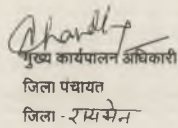 मुख्य कार्यपालन अधिकारी
जिला पंचायत
जिला - रायसेन